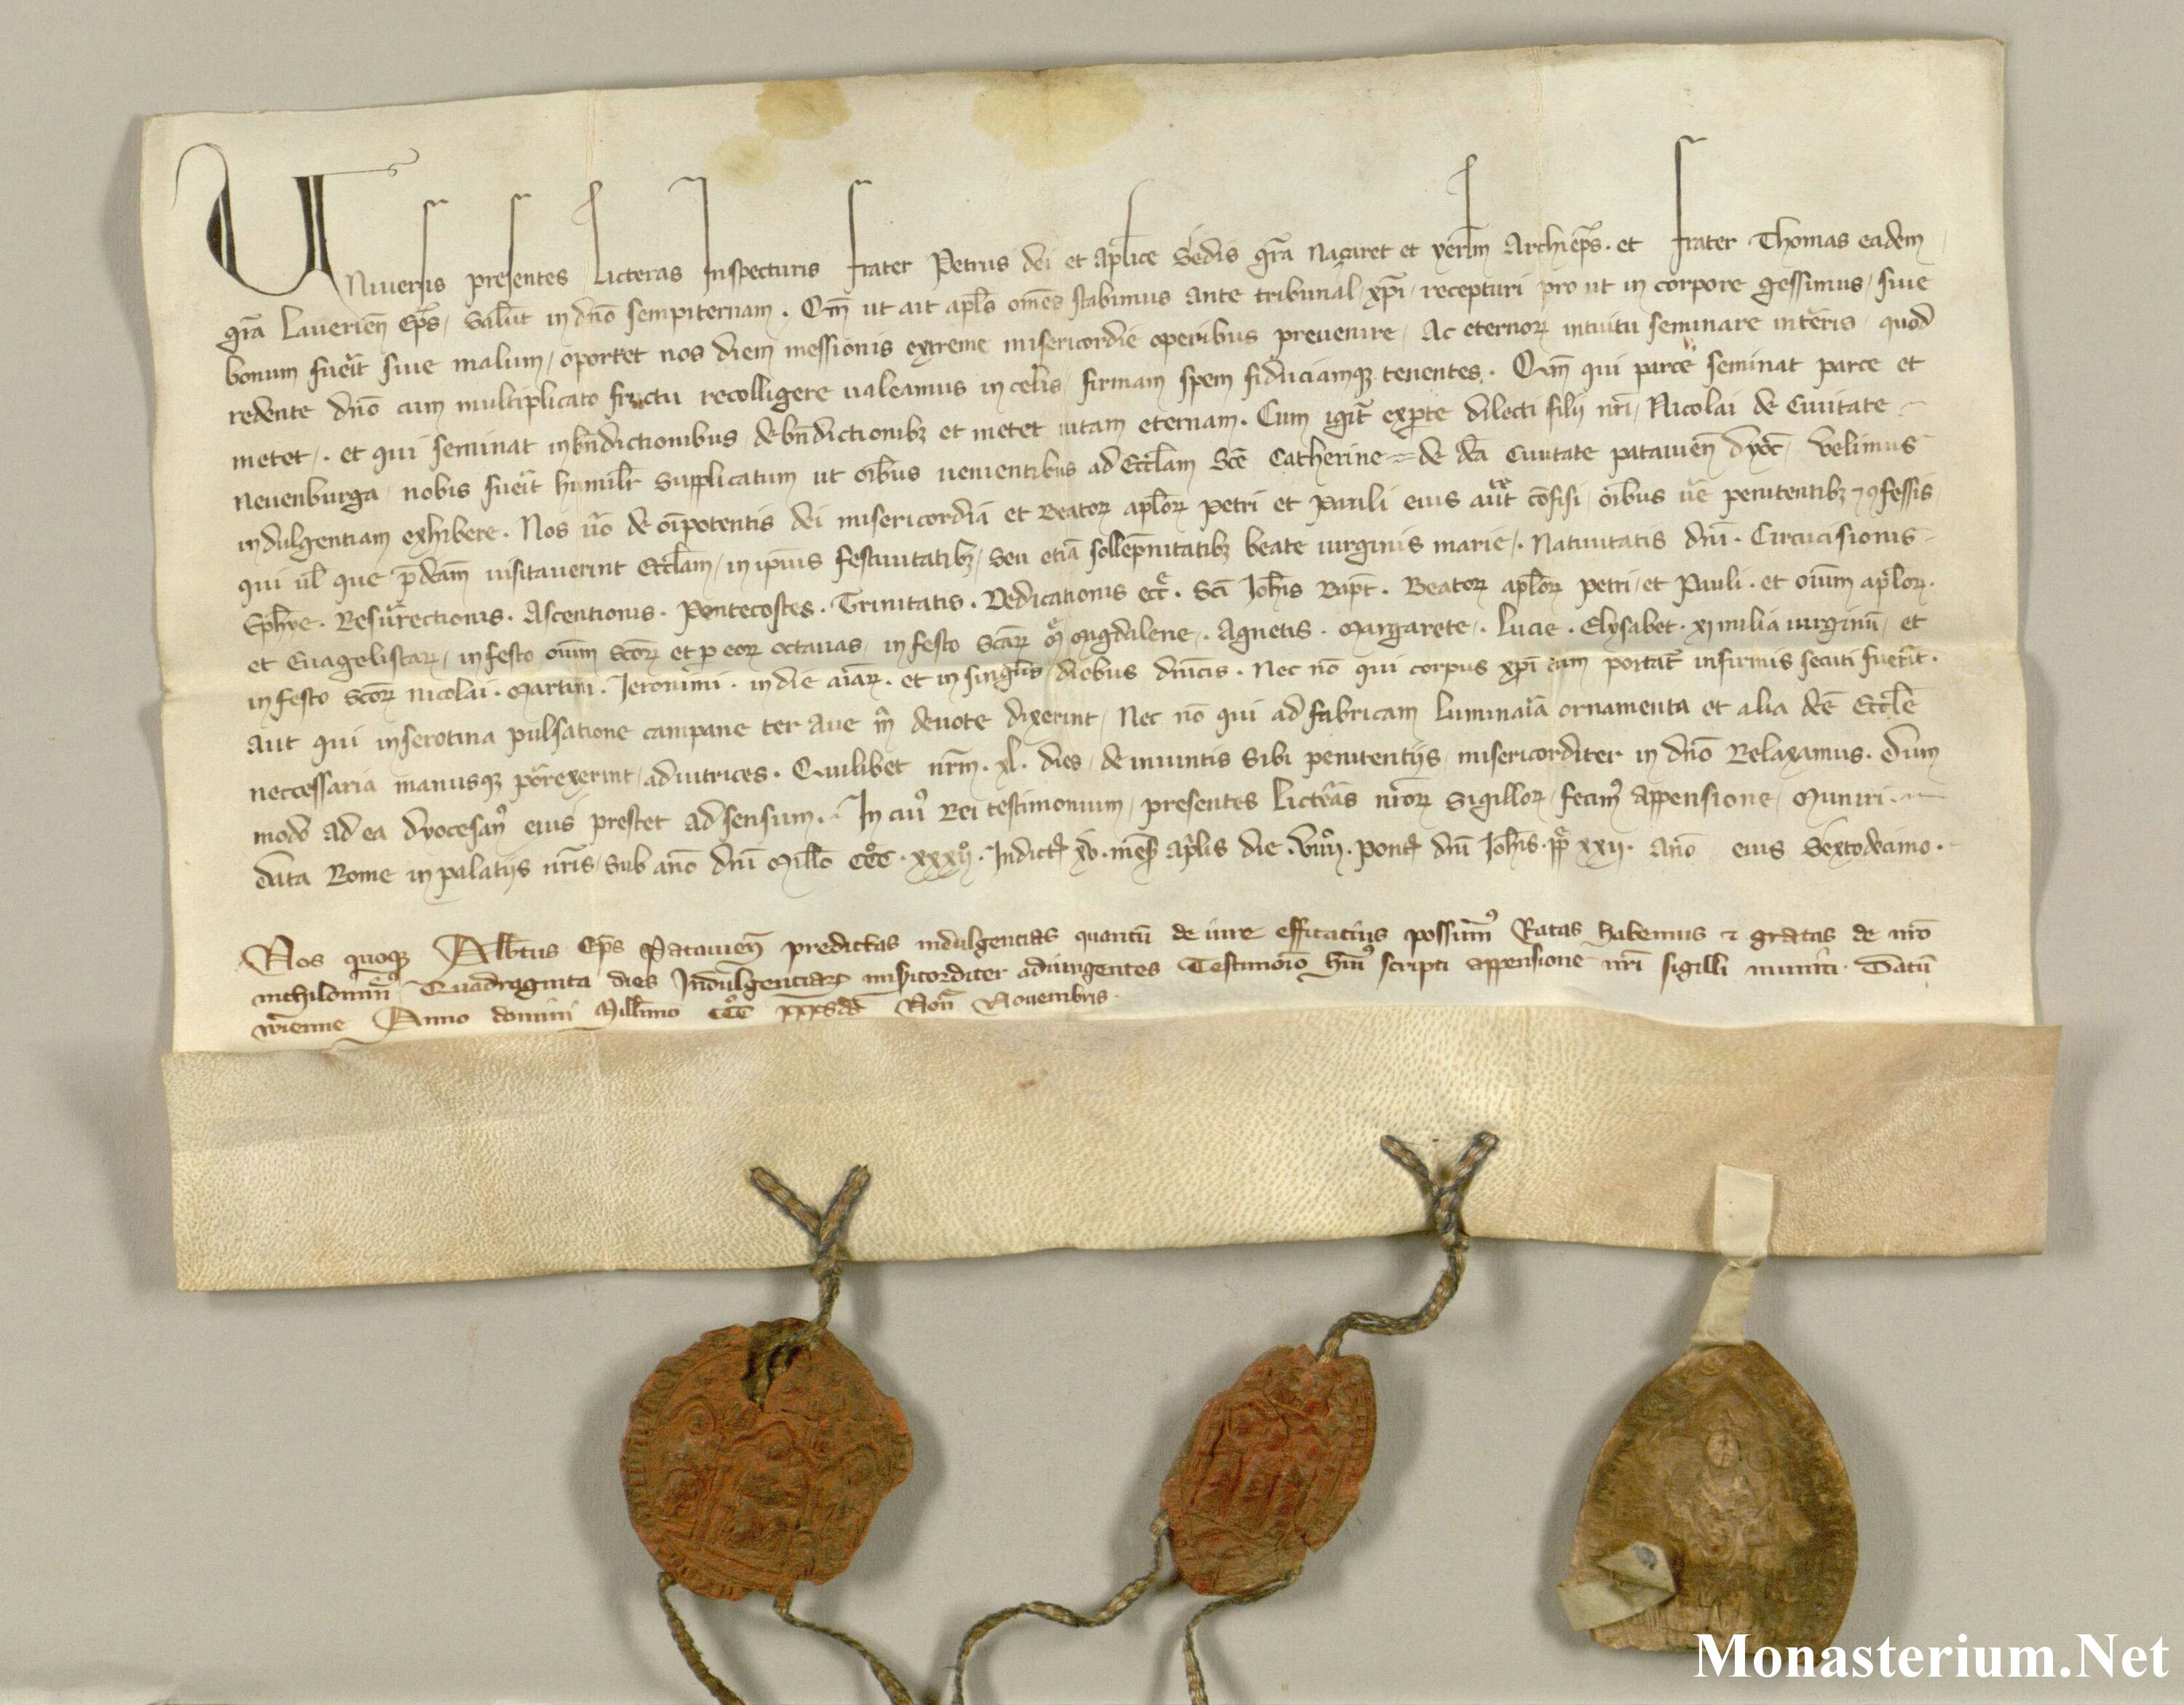 Universis presentes Licteras Inspecturis frater Petrus dei et aplice Sedis gra Naçaret et Archieps. et frater Thomas eadem
gra Lauerien Eps, Salut in dno sempiternam. Qm ut ait apls omes stabimus ante tribunal xpi recepturi pro ut in corpore gessimus, siue
bonum fuerit siue malum, oportet nos diem messionis extreme misericordie operibus preuenire, Ac eternorum intuitu seminare in terris, quod
redente dno cum multiplicato fructu recolligere ualeamus in celis, firmam spem fiduciamque tenentes. Qm qui parce seminat parce et
metet. et qui seminat in bndictionibus, de bndictionibus et metet uitam eternam. Cum igitur ex parte dilecti filij nri, Nicolai de Ciuitate
Neuenburga, nobis fuerit humilr supplicatum ut oibus uenientibus ad Ecclam Sce Catherine de dca Ciuitate patauien dyoc, uelimus
indulgentiam exhibere. Nos uo de oipotentis dei misericordia et Beatorum aplorum Petri et Pauli eius auct cofisi, oibus ue penitentibus et confessis
qui uel que pdcam uisitauerint Ecclam, in ipius festiuitatibus, seu etia sollepnitatibus beate uirginis marie. Natiuitatis dni. Circucisionis
Ephye. Resurrectionis. Ascentionis. Pentecostes. Trinitatis. Dedicationis ecc. Sci Johis Bapt. Beatorum aplorum petri, et Pauli. et oium aplorum.
et Euagelistarum, in festo oium Scorum et per eorum octauas, in festo Scarum Magdalene. Agnetis. Margarete. Lucie. Elysabet. xi milia uirginu, et
in festo Scorum Nicolai. Martini. Jeronimi. in die aiarum. et in singulis diebus dnicis. Nec no qui corpus xpi cum portat infirmis secuti fuerit.
aut qui in serotina pulsatione campane ter aue m deuote dixerint, Nec no qui ad fabricam luminaria ornamenta et alia dce Eccle
neccessaria manusque porrexerint, adiutrices. Quilibet nrm. xl. dies, de iniuntis sibi penitentijs, misericorditer in dno Relaxamus. Dum
modo ad ea dyocesanus eius prestet adsensum. In cuius Rei testimonium, presentes Licteras nrorum Sigillorum, fecimus appensione, Muniri.
Data Rome in palatijs nris, Sub ano dni Millo CCC. xxxij. Indict xv. mens aplis die. viiij. pont dni Johis. pp xxij. Ano eius Sextodecimo.
Nos quoque Albtus Eps Patauien predictas indulgencias quantu de iure efficatius possumus Ratas habemus et gratas de nro
nichilominus Quadraginta dies Indulgenciarum misericorditer adiungentes Testimoio huius scripti appensione nri sigilli muniti. Datu
wienne Anno domini Millimo CCC Non Nouembris.
Monasterium.Net